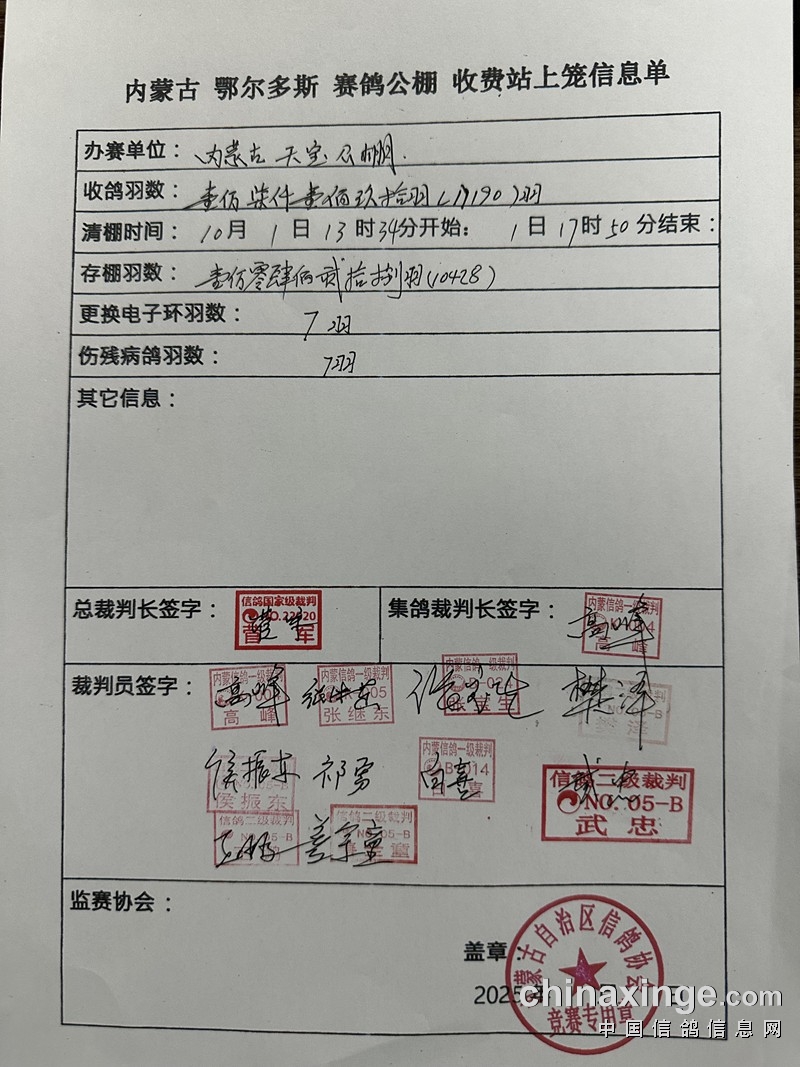 内蒙古 鄂尔多斯 赛鸽公棚 收费站上笼信息单
办赛单位：内蒙古天宝公棚.
收鸽羽数：壹佰柒仟壹佰玖拾羽(17190)羽
清棚时间：10月1日13时34分开始：1日17时50分结束：
存棚羽数：壹佰零肆佰贰拾捌羽(10428)
更换电子环羽数：7羽
伤残病鸽羽数：7羽
其它信息：
总裁判长签字：
信鸽国家级裁判
NO.22020
曹军
集鸽裁判长签字：高峰
内蒙信鸽一级裁判
高峰
裁判员签字：高峰 张继东 樊泽
内蒙信鸽一级裁判
高峰
内蒙信鸽一级裁判
张继东
内蒙信鸽一级裁判
侯振东 祁勇 白喜
侯振东
内蒙信鸽一级裁判
信鸽二级裁判
NO.05-B
武忠
信鸽二级裁判
NO.05-B
信鸽二级裁判
NO.05-B
监赛协会：
盖章：
2025
蒙古自治区信鸽协会
竞赛专用章
chinaxinge.com
中国信鸽信息网